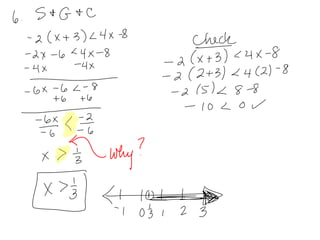 6. S & G & C
-2(x+3) < 4x-8
-2x -6 < 4x-8
-4x -4x
-6x -6 < -8
+6 +6
-6x/-6 < -2/-6
x > 1/3
Why?
x > 1/3
Check
-2(x+3) < 4x-8
-2(2+3) < 4(2)-8
-2(5) < 8-8
-10 < 0 ✓
-1 0 1/3 1 2 3